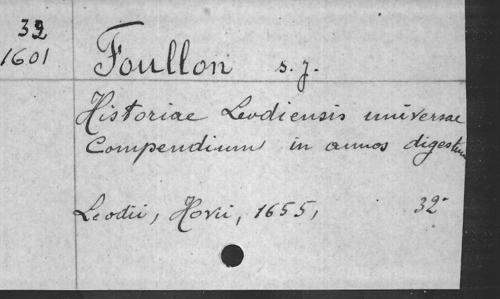 32
1601
Foullon s. j.
Historiae Leodiensis universae
Compendium in annos digestum
Leodii, Hovii, 1655, 32°